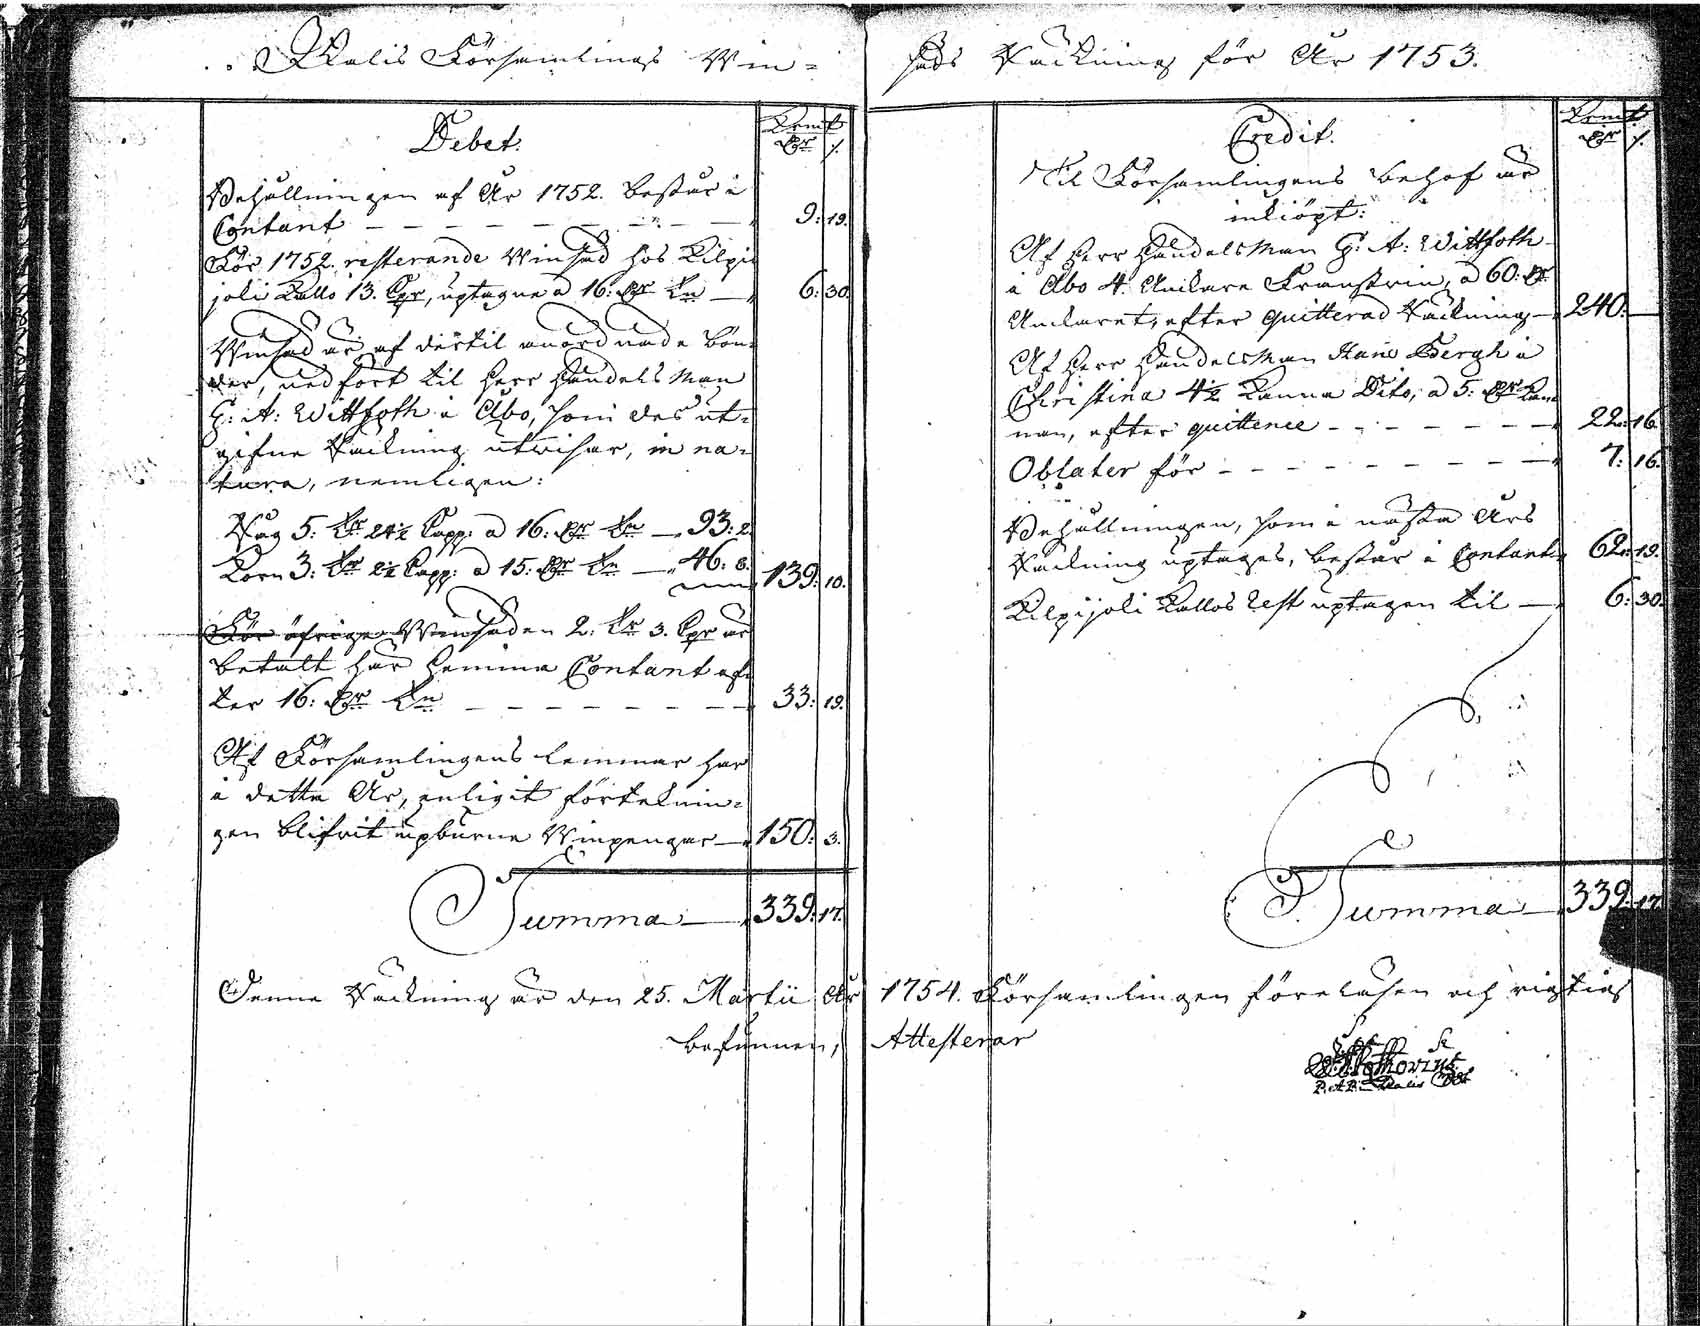 Walis Församlings Win=
säds Räckning för År 1753.
Debet.
Kopmt
Dr /.
Behållningen af År 1752. består i
Contant - - - - - - - 9: 19.
För 1752. resterande Winsäd hos Kilpi
joki Kallo 13. Cpr, uptagne a 16: Dr Tn — 6: 30.
Winsäd är af dertil anordnade bön-
der, nedfört til Herr Handels Man
G: A: Wittfoth i Åbo, som des ut-
gifne Räckning utwisar, in na-
tura, nemligen:
Råg 5: Tr 24½ Capp: a 16: Dr Tn — 93: 2.
Korn 3: Tr 2½ Capp: a 15: Dr Tn — 46: 8.
139: 10.
För öfrige Winsäden 2: Tr 3. Cpr är
betalt här hemma Contant ef-
ter 16: Dr Tn - - - - - - - 33: 19.
Af Församlingens lemmar har
i detta År, enligit förteknin=
gen blifvit upburne Winpengar — 150: 3.
Summa — 339: 17.
Credit.
Dr /.
Til Församlingens behof är
inköpt:
Af Herr Handels Man G: A: Wittfoth
i Åbo 4. Ankare Franskvin, a 60: Dr
Ankaret, efter quitterad Räckning — 240: —
Af Herr Handels Man Hans Bergh i
Christina 4½ Kanna Dito, a 5: Dr Kan
nan, efter quittence - - - - - - 22: 16.
Oblater för - - - - - - - - 7: 16.
Behållningen, som i nästa Års
Räckning uptages, består i Contant 62: 19.
Kilpijoki Kallos Rest uptagen til — 6: 30.
Summa — 339: 17.
Denne Räckning är den 25. Martii År 1754. Församlingen föreläsen och rigtig
befunnen, Attesterar